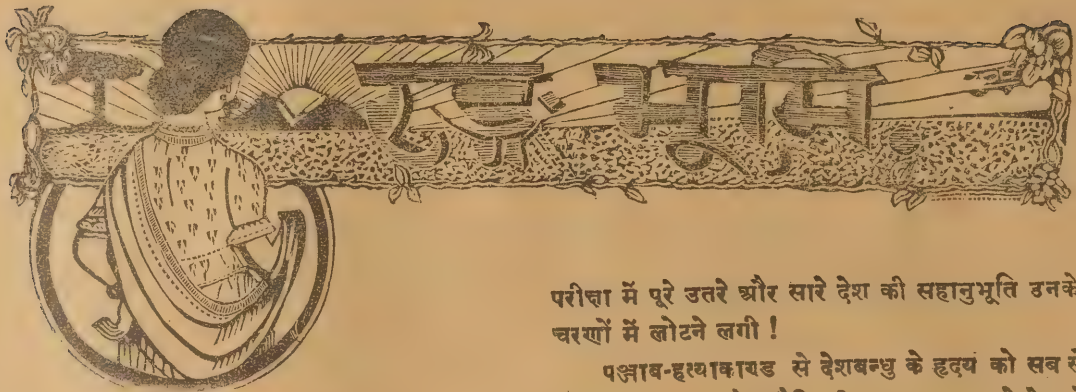 रङ्ग भूमि
परीक्षा में पूरे उतरे और सारे देश की सहानुभूति उनके
चरणों में लोटने लगी !
पञ्जाब-हत्याकाण्ड से देशबन्धु के हृदय को सब से